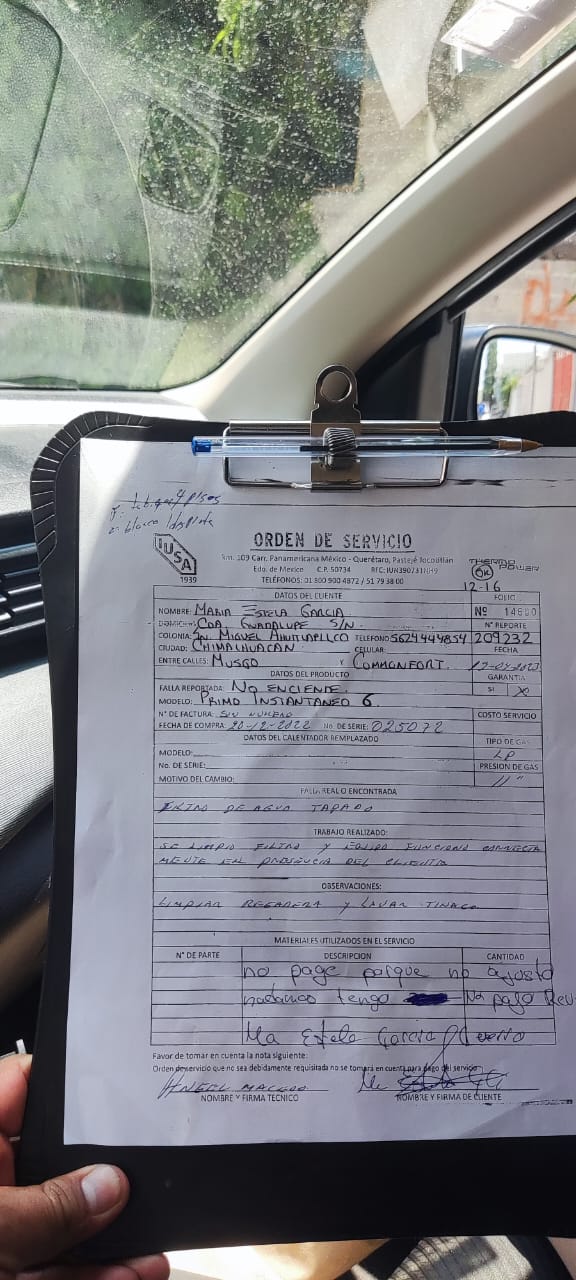 casa 4 pisos
blanco 1da pista
ORDEN DE SERVICIO
IUSA
1939
Km. 109 Carr. Panamericana México - Querétaro, Pastejé Jocotitlán
Edo. de Mexico C.P. 50734 RFC: IUN390731NH9
TELÉFONOS: 01 800 900 4872 / 51 79 38 00
THERMO POWER
12-16
DATOS DEL CLIENTE
FOLIO
NOMBRE: MARIA ESTELA GARCIA
Nº 14600
DOMICILIO: CDA. GUADALUPE S/N
N° REPORTE
COLONIA: SN. MIGUEL TELÉFONO 5624444854 209232
CIUDAD: CHIMALHUACAN CELULAR: FECHA
ENTRE CALLES: MUSGO Y COMMONFORT.
DATOS DEL PRODUCTO
GARANTIA
FALLA REPORTADA: NO ENCIENDE.
SI
MODELO: PRIMO INSTANTANEO 6
N° DE FACTURA: SIN NUMERO
COSTO SERVICIO
FECHA DE COMPRA: 20-12-2022 No. DE SERIE: 025072
DATOS DEL CALENTADOR REMPLAZADO
TIPO DE GAS
MODELO: LP
No. DE SERIE:
PRESION DE GAS
MOTIVO DEL CAMBIO: 11"
FALLA REAL O ENCONTRADA
FILTRO DE AGUA TAPADO
TRABAJO REALIZADO:
SE LIMPIO FILTRO Y EQUIPO FUNCIONA CORRECTA
MENTE EN PRESENCIA DEL CLIENTE
OBSERVACIONES:
LIMPIAR REGADERA Y LAVAR TINACO
MATERIALES UTILIZADOS EN EL SERVICIO
N° DE PARTE DESCRIPCION CANTIDAD
no page porque no agosto
tengo No pago Rev
Ma Estela Garcia
Favor de tomar en cuenta la nota siguiente:
Orden de servicio que no sea debidamente requisitada no se tomará en cuenta para pago del servicio
NOMBRE Y FIRMA TECNICO
NOMBRE Y FIRMA DE CLIENTE